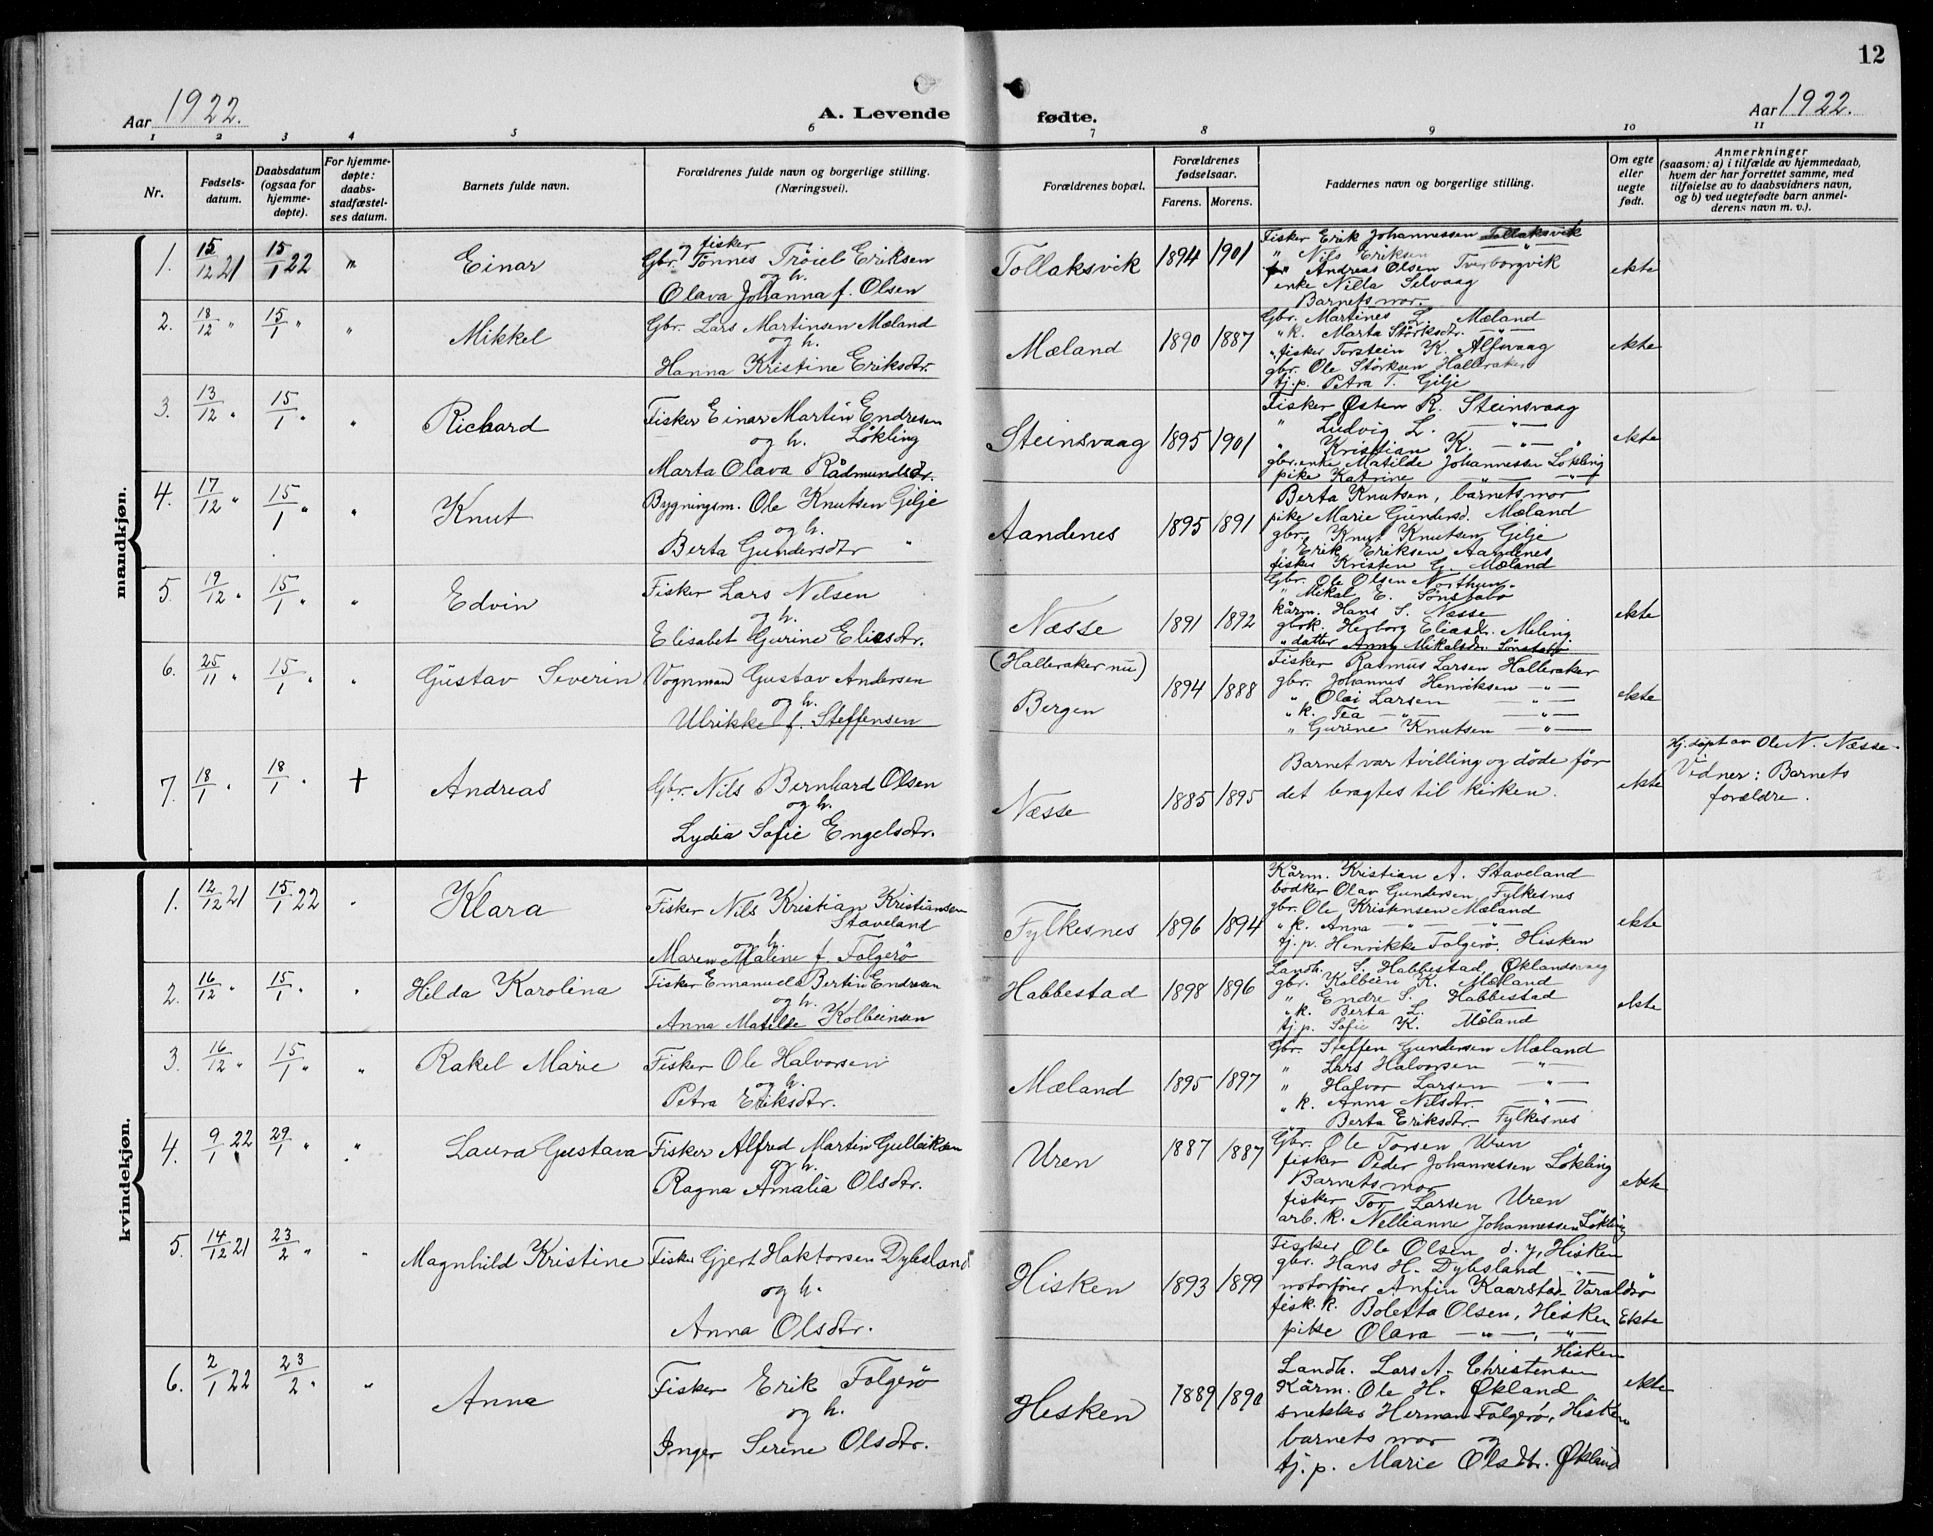 12
Aar 1922.
A. Levende
fødte.
Aar 1922.
1 2 3 4 5 6 7 8 9 10 11
Nr.
Fødsels-
datum.
Daabsdatum
(ogsaa for
hjemme-
døpte).
For hjemme-
døpte:
daabs-
stadfæstel-
ses datum.
Barnets fulde navn.
Forældrenes fulde navn og borgerlige stilling.
(Næringsvei).
Forældrenes bopæl.
Forældrenes
fødselsaar.
Farens. Morens.
Faddernes navn og borgerlige stilling.
Om egte
eller
uegte
født.
Anmerkninger
(saasom: a) i tilfælde av hjemmedaab,
hvem der har forrettet samme, med
tilføielse av to daabsvidners navn,
og b) ved uegtefødte barn anmel-
derens navn m. v.).
mandkjøn.
1. 15/12 21 15/1 22 " Einar
fisker
Gbr. Tønnes Trøiel Eriksen
og h.
Olava Johanna f. Olsen
Tollaksvik 1894 1901
Fisker Erik Johannessen Tollaksvik
" Nils Eriksen "
" Andreas Olsen Tverborgvik
enke Nilla Selvaag
Barnets mor.
ekte
2. 18/12 " 15/1 " " Mikkel
Gbr. Lars Martinsen Mæland
og h.
Hanna Kristine Eriksdtr.
Mæland 1890 1887
Gbr. Martines L. Mæland
" k. Marta Størksdtr. —"—
" fisker Torstein K. Alfsvaag
gbr. Ole Størksen Halleraker
tj.p. Petra T. Gilje
ekte
3. 13/12 " 15/1 " " Richard
Fisker Einar Martin Endresen
og h. Løkling
Marta Olava Rådmundsdtr.
Steinsvaag 1895 1901
Fisker Østen R. Steinsvaag
" Ludvig L. —"—
" Kristian K. —"—
gbr.enke Matilde Johannessen Løkling
pike Katrine —"— "
ekte
4. 17/12 " 15/1 " " Knut
Bygningsm. Ole Knutsen Gilje
og h.
Berta Gundersdtr "
Aandenes 1895 1891
Berta Knutsen, barnets mor
pike Marie Gundersd. Mæland
gbr. Knut Knutsen Gilje
" Erik Eriksen Aandenes
fisker Kristen G. Mæland
5. 19/12 " 15/1 " " Edvin
Fisker Lars Nilsen
og h.
Elisabet Gurine Eliasdtr.
Næsse 1891 1892
Gbr. Ole Olsen Northun.
" Mikal E. Sønstabø
kårm. Hans S. Næsse
gbrk. Herborg Eliasdtr. Meling
" datter Anny Mikalsdtr. Sønstabø
ekte
6. 25/11 " 15/1 " " Gustav Severin
Vognmand Gustav Andersen
og h.
Ulrikke f. Steffensen
(Halleraker nu)
Bergen 1894 1888
Fisker Rasmus Larsen Halleraker
gbr. Johannes Henriksen —"—
" Olai Larsen —"—
" k. Tea —"— —"—
" Gurine Knutsen —"—
ekte
7. 18/1 " 18/1 " + Andreas
Gbr. Nils Bernhard Olsen
og h.
Lydia Sofie Engelsdtr.
Næsse 1885 1895
Barnet var tvilling og døde før
det bragtes til kirken.
ekte
Hj. døpt av Ole N. Næsse.
Vidner: Barnets
forældre.
kvindekjøn.
1. 12/12 21 15/1 22 " Klara
Fisker Nils Kristian Kristiansen
Staveland
og h.
Maren Malene f. Folgerø
Fylkesnes 1896 1894
Kårm. Kristian A. Staveland
bødker Olav Gundersen Fylkesnes
gbr. Ole Kristensen Mæland
" k. Anna —"— —"—
tj.p. Henrikke Folgerø, Hisken
ekte
2. 16/12 " 15/1 " " Hilda Karolina
Fisker Emanuel Bertin Endresen
og h.
Anna Matilde Kolbeinsen
Habbestad 1898 1896
Landh. S. Habbestad, Øklandsvaag
gbr. Kolbein K. Mæland
" Endre S. Habbestad
" k. Berta L. "
tj.p. Sofie K. Mæland
ekte
3. 16/12 " 15/1 " " Rakel Marie
Fisker Ole Halvorsen
og h.
Petra Eriksdtr.
Mæland 1895 1897
Gbr. Steffen Gundersen Mæland
" Lars Halvorsen —"—
" Halvor Larsen —"—
" k. Anna Nilsdtr. —"—
Berta Eriksdtr. Fylkesnes
4. 9/1 22 29/1 " " Laura Gustava
Fisker Alfred Martin Gulleiksen
og h.
Ragna Amalia Olsdtr.
Uren 1887 1887
Gbr. Ole Torsen Uren
fisker Peder Johannessen Løkling
Barnets mor
fisker Tor Larsen Uren
arb. k. Nellianne Johannessen Løkling
ekte
5. 14/12 21 23/2 " " Magnhild Kristine
Fisker Gjert Haktorsen Dybsland
og h.
Anna Olsdtr.
Hisken 1893 1899
Fisker Ole Olsen d. y, Hisken
gbr. Hans H. Dybsland —"—
motorfører Anfin Kaarstad Varaldsø
fisk. k. Boletta Olsen, Hisken
pike Olava —"—, —"—
Ekte
6. 2/1 22 23/2 " " Anna
Fisker Erik Folgerø
og h.
Inger Serine Olsdtr.
Hisken 1889 1890
Hisken
Landh. Lars A. Christensen
Kårm. Ole H. Økland
snekker Herman Folgerø, Hisken
barnets mor og
tj. p. Marie Olsdtr. Økland
ekte